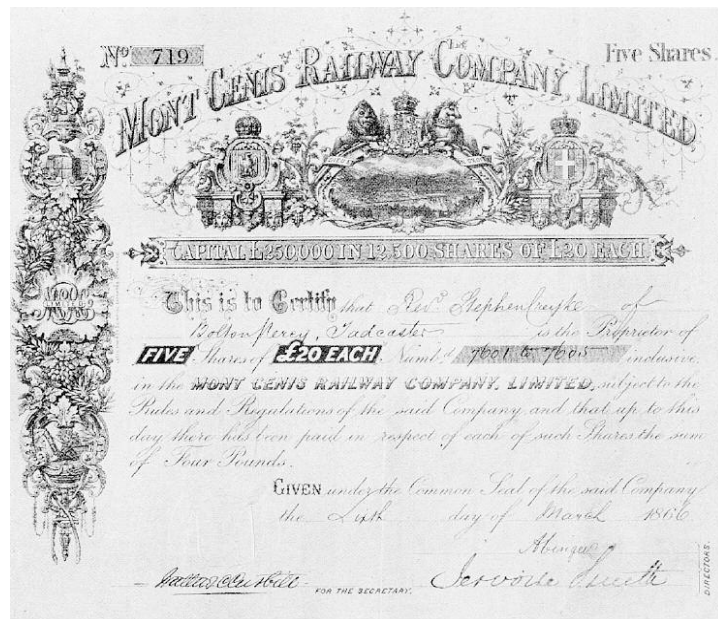 No. 719
Five Shares.
MONT CENIS RAILWAY COMPANY LIMITED
CAPITAL £250,000 IN 12,500 SHARES OF £20 EACH
This is to Certify that Revd. Stephen Creyke of
Bolton Percy, Tadcaster is the Proprietor of
FIVE Shares of £20 EACH, Numbd. 7601 to 7605 inclusive,
in the MONT CENIS RAILWAY COMPANY, LIMITED, subject to the
Rules and Regulations of the said Company and that up to this
day there has been paid in respect of each of such Shares the sum
of Four Pounds.
GIVEN under the Common Seal of the said Company
the Sixth day of March 1866
Abinger
Jervoise Smith
DIRECTORS.
FOR THE SECRETARY.